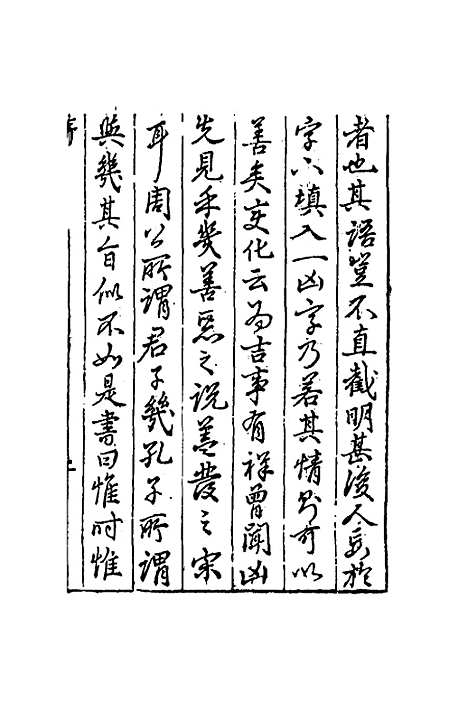 者也其語豈不直截明甚後人妄於
字下填入一凶字乃若其情則可以
善矣变化云為吉事有祥曾聞凶
先見乎幾善惡之説蓋發之宋
耳周公所謂君子幾孔子所謂
與幾其旨似不如是書曰惟时惟